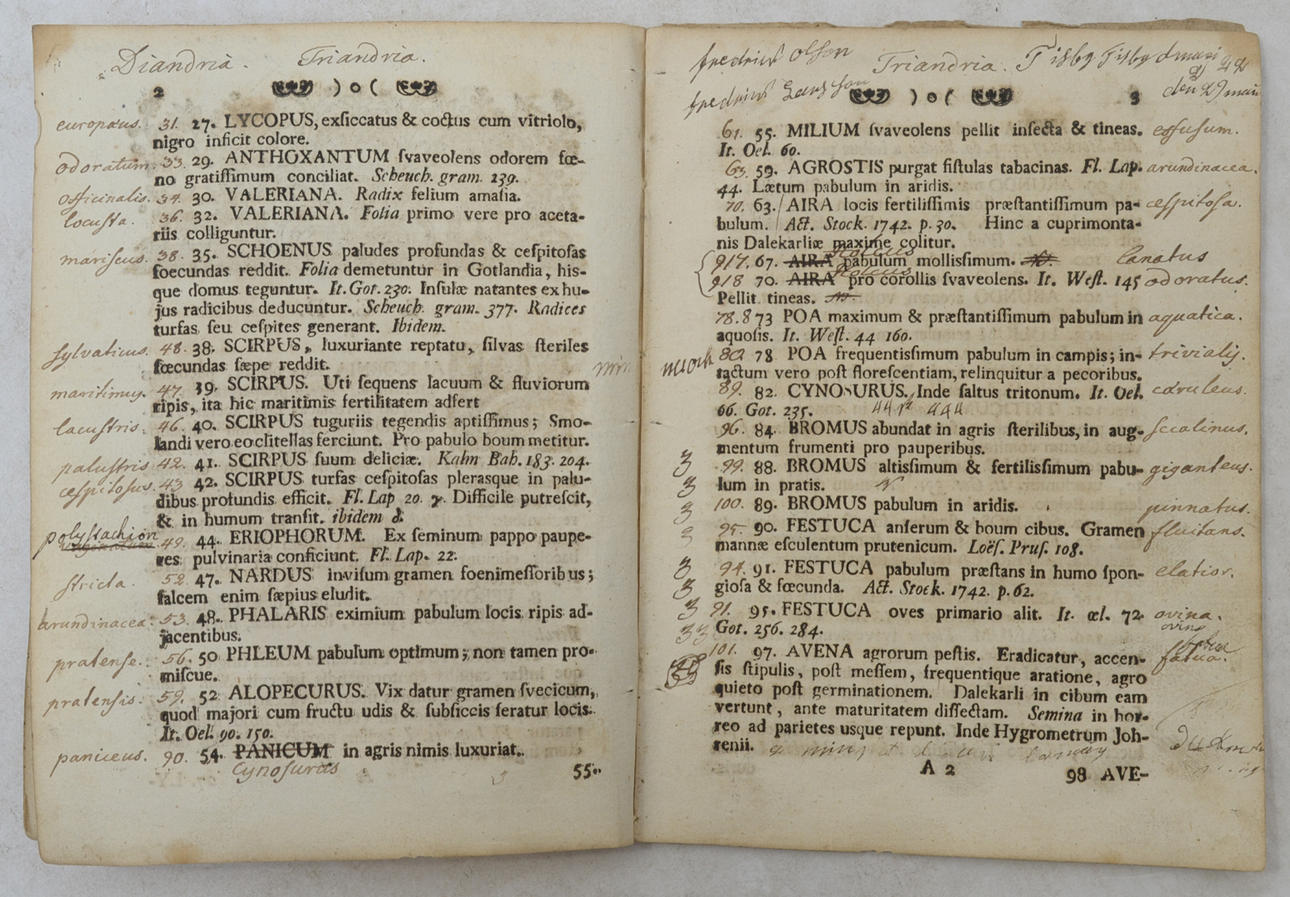 Diandria. Triandria.
2 ) o (
europæus. 31. 27. LYCOPUS, exſiccatus & coctus cum vitriolo,
nigro inficit colore.
odoratum. 33. 29. ANTHOXANTUM ſvaveolens odorem fœ-
no gratiſſimum conciliat. Scheuch. gram. 239.
officinalis. 34. 30. VALERIANA. Radix felium amaſia.
locusta. 36. 32. VALERIANA. Folia primo vere pro aceta-
riis colliguntur.
mariscus. 38. 35. SCHOENUS paludes profundas & ceſpitoſas
foecundas reddit. Folia demetuntur in Gotlandia, his-
que domus teguntur. It. Got. 230. Inſulæ natantes ex hu-
jus radicibus deducuntur. Scheuch. gram. 377. Radices
turfas ſeu ceſpites generant. Ibidem.
sylvaticus. 48. 38. SCIRPUS, luxuriante reptatu, ſilvas ſteriles
fœcundas ſæpe reddit.
maritimus. 47. 39. SCIRPUS. Uti ſequens lacuum & fluviorum
ripis, ita hic maritimis fertilitatem adfert
lacustris. 46. 40. SCIRPUS tuguriis tegendis aptiſſimus; Smo-
landi vero eo clitellas ferciunt. Pro pabulo boum metitur.
palustris. 42. 41. SCIRPUS ſuum deliciæ. Kalm Bah. 183. 204.
cæspitosus. 43 42. SCIRPUS turfas ceſpitoſas plerasque in palu-
dibus profundis efficit. Fl. Lap 20. γ. Difficile putreſcit,
& in humum tranſit. ibidem δ.
polystachion 49. 44. ERIOPHORUM. Ex ſeminum pappo paupe-
res pulvinaria conficiunt. Fl. Lap. 22.
stricta. 52. 47. NARDUS inviſum gramen foenimeſſoribus;
falcem enim ſæpius eludit.
arundinacea. 53. 48. PHALARIS eximium pabulum locis ripis ad-
jacentibus.
pratense. 56. 50 PHLEUM pabulum optimum; non tamen pro-
miſcue.
pratensis. 59. 52 ALOPECURUS. Vix datur gramen ſvecicum,
quod majori cum fructu udis & ſubſiccis ſeratur locis.
It. Oel. 90. 150.
paniceus. 90. 54. PANICUM in agris nimis luxuriat.
Cynosurus
55.
fredrius Olſon Triandria.
fredrius Larsſon
) o ( 3
61. 55. MILIUM ſvaveolens pellit inſecta & tineas. effusum.
It. Oel. 60.
63. 59. AGROSTIS purgat fiſtulas tabacinas. Fl. Lap. arundinacea.
44. Lætum pabulum in aridis.
70. 63. AIRA locis fertiliſſimis præſtantiſſimum pa- cespitosa.
bulum. Act. Stock. 1742. p. 30. Hinc a cuprimonta-
nis Dalekarliæ maxime colitur.
Holcus
917. 67. AIRA pabulum molliſſimum. Lanatus
Holcus
918 70. AIRA pro corollis ſvaveolens. It. Weſt. 145 odoratus.
Pellit tineas.
78.8 73 POA maximum & præſtantiſſimum pabulum in aquatica.
aquoſis. It. Weſt. 44 160.
80 78 POA frequentiſſimum pabulum in campis; in- trivialis.
tactum vero poſt floreſcentiam, relinquitur a pecoribus.
89. 82. CYNOSURUS. Inde ſaltus tritonum. It. Oel. cæruleus.
66. Got. 235.
96. 84. BROMUS abundat in agris ſterilibus, in aug- secalinus.
mentum frumenti pro pauperibus.
3 99. 88. BROMUS altiſſimum & fertiliſſimum pabu- giganteus.
3 lum in pratis.
3 100. 89. BROMUS pabulum in aridis. pinnatus.
3 95. 90. FESTUCA anſerum & boum cibus. Gramen fluitans.
mannæ eſculentum prutenicum. Loëſ. Pruſ. 108.
3 94. 91. FESTUCA pabulum præſtans in humo ſpon- elatior.
3 gioſa & fœcunda. Act. Stock. 1742. p. 62.
3 91. 95. FESTUCA oves primario alit. It. œl. 72 ovina.
33 Got. 256. 284. ovina
101. 97. AVENA agrorum peſtis. Eradicatur, accen- fatua.
ſis ſtipulis, poſt meſſem, frequentique aratione, agro
quieto poſt germinationem. Dalekarli in cibum eam
vertunt, ante maturitatem diſſectam. Semina in hor-
reo ad parietes usque repunt. Inde Hygrometrum Joh-
renii.
A 2 98 AVE-